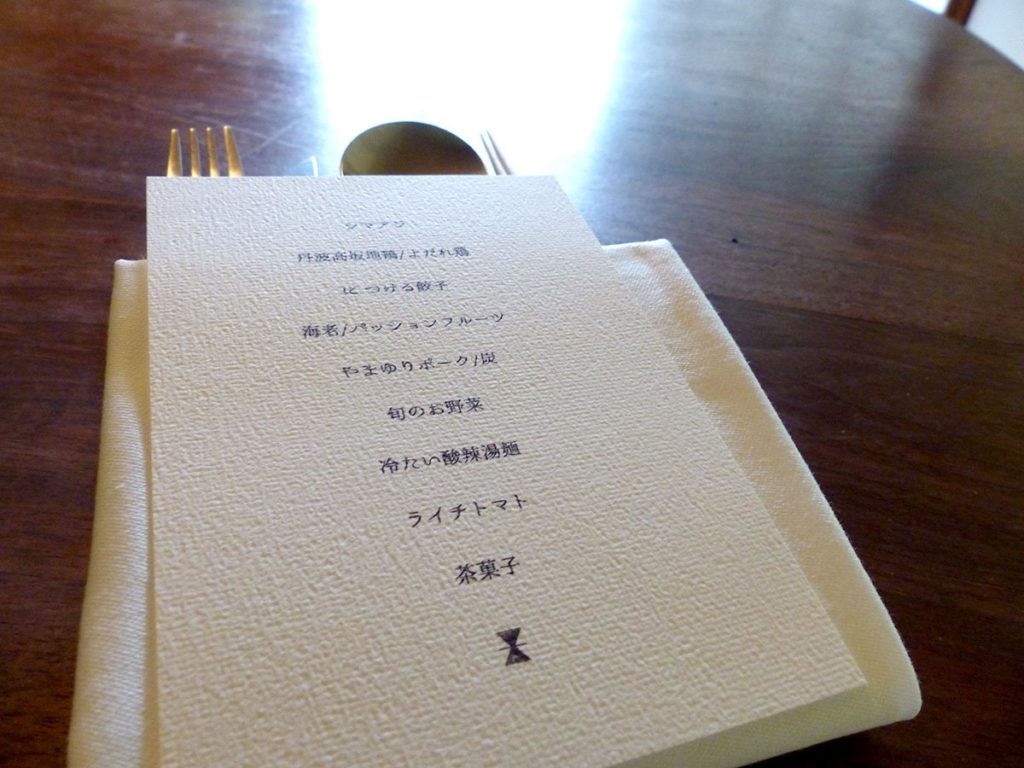 シマアジ
丹波高坂地鶏/よだれ鶏
につける餃子
海老/パッションフルーツ
やまゆりポーク/炭
旬のお野菜
冷たい酸辣湯麺
ライチトマト
茶菓子